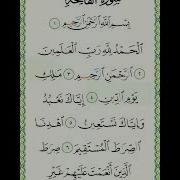 سُورَةُ الْفَاتِحَةِ
بِسْمِ اللَّهِ الرَّحْمَٰنِ الرَّحِيمِ ١
الْحَمْدُ لِلَّهِ رَبِّ الْعَالَمِينَ
٢ الرَّحْمَٰنِ الرَّحِيمِ ٣ مَالِكِ
يَوْمِ الدِّينِ ٤ إِيَّاكَ نَعْبُدُ
وَإِيَّاكَ نَسْتَعِينُ ٥ اهْدِنَا
الصِّرَاطَ الْمُسْتَقِيمَ ٦ صِرَاطَ
الَّذِينَ أَنْعَمْتَ عَلَيْهِمْ غَيْرِ